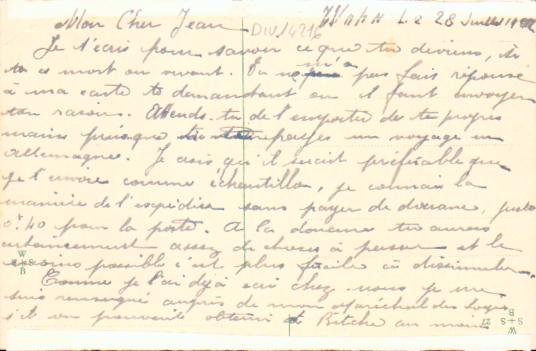 Mon Cher Jean DIV14216 Wahn Le 28 Juillet
Je t'écris pour savoir ce que tu deviens, si
tu es mort ou vivant. Tu ne m'a pas fait réponse
à ma carte te demandant où il faut envoyer
ton rasoir. Attends-tu de l'emporter de tes propres
mains puisque tu te payes un voyage en
Allemagne. Je crois qu'il serait préférable que
je l'envoie comme échantillon, je connais la
manière de l'expédier sans payer de douane, juste
0f40 pour la poste. A la douane tu auras
certainement assez de choses à passer et le
moins possible c'est plus facile à dissimuler.
Comme je l'ai déjà écrit chez nous je me
suis renseigné auprès de mon maréchal des logis
s'il on pouvait obtenir Bitche au moins
W S + B
W S + S B